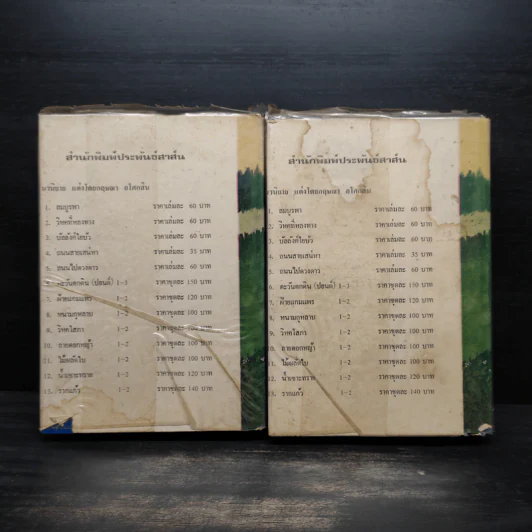 สำนักพิมพ์ประพันธ์สาส์น
นวนิยาย แต่งโดยกฤษณา อโศกสิน
1. ลมบูรพา ราคาเล่มละ 60 บาท
2. วิหคที่หลงทาง ราคาเล่มละ 60 บาท
3. บัลลังก์ใยบัว ราคาเล่มละ 60 บาท
4. ถนนสายเสน่หา ราคาเล่มละ 35 บาท
5. ถนนไปดวงดาว ราคาเล่มละ 60 บาท
6. ตะวันตกดิน (ปอนด์) 1-3 ราคาชุดละ 150 บาท
7. ฝ้ายแกมแพร 1-2 ราคาชุดละ 120 บาท
8. หนามกุหลาบ 1-2 ราคาชุดละ 100 บาท
9. วิหคโสภา 1-2 ราคาชุดละ 100 บาท
10. ลายดอกหญ้า 1-2 ราคาชุดละ 100 บาท
11. ไม้ผลัดใบ 1-2 ราคาชุดละ 100 บาท
12. น้ำเซาะทราย 1-2 ราคาชุดละ 120 บาท
13. รากแก้ว 1-2 ราคาชุดละ 140 บาท
สำนักพิมพ์ประพันธ์สาส์น
นวนิยาย แต่งโดยกฤษณา อโศกสิน
1. ลมบูรพา ราคาเล่มละ 60 บาท
2. วิหคที่หลงทาง ราคาเล่มละ 60 บาท
3. บัลลังก์ใยบัว ราคาเล่มละ 60 บาท
4. ถนนสายเสน่หา ราคาเล่มละ 35 บาท
5. ถนนไปดวงดาว ราคาเล่มละ 60 บาท
6. ตะวันตกดิน (ปอนด์) ราคาชุดละ 150 บาท
7. ฝ้ายแกมแพร 1-2 ราคาชุดละ 120 บาท
8. หนามกุหลาบ 1-2 ราคาชุดละ 100 บาท
9. วิหคโสภา 1-2 ราคาชุดละ 100 บาท
10. ลายดอกหญ้า 1-2 ราคาชุดละ 100 บาท
11. ไม้ผลัดใบ 1-2 ราคาชุดละ 100 บาท
12. น้ำเซาะทราย 1-2 ราคาชุดละ 120 บาท
13. รากแก้ว 1-2 ราคาชุดละ 140 บาท